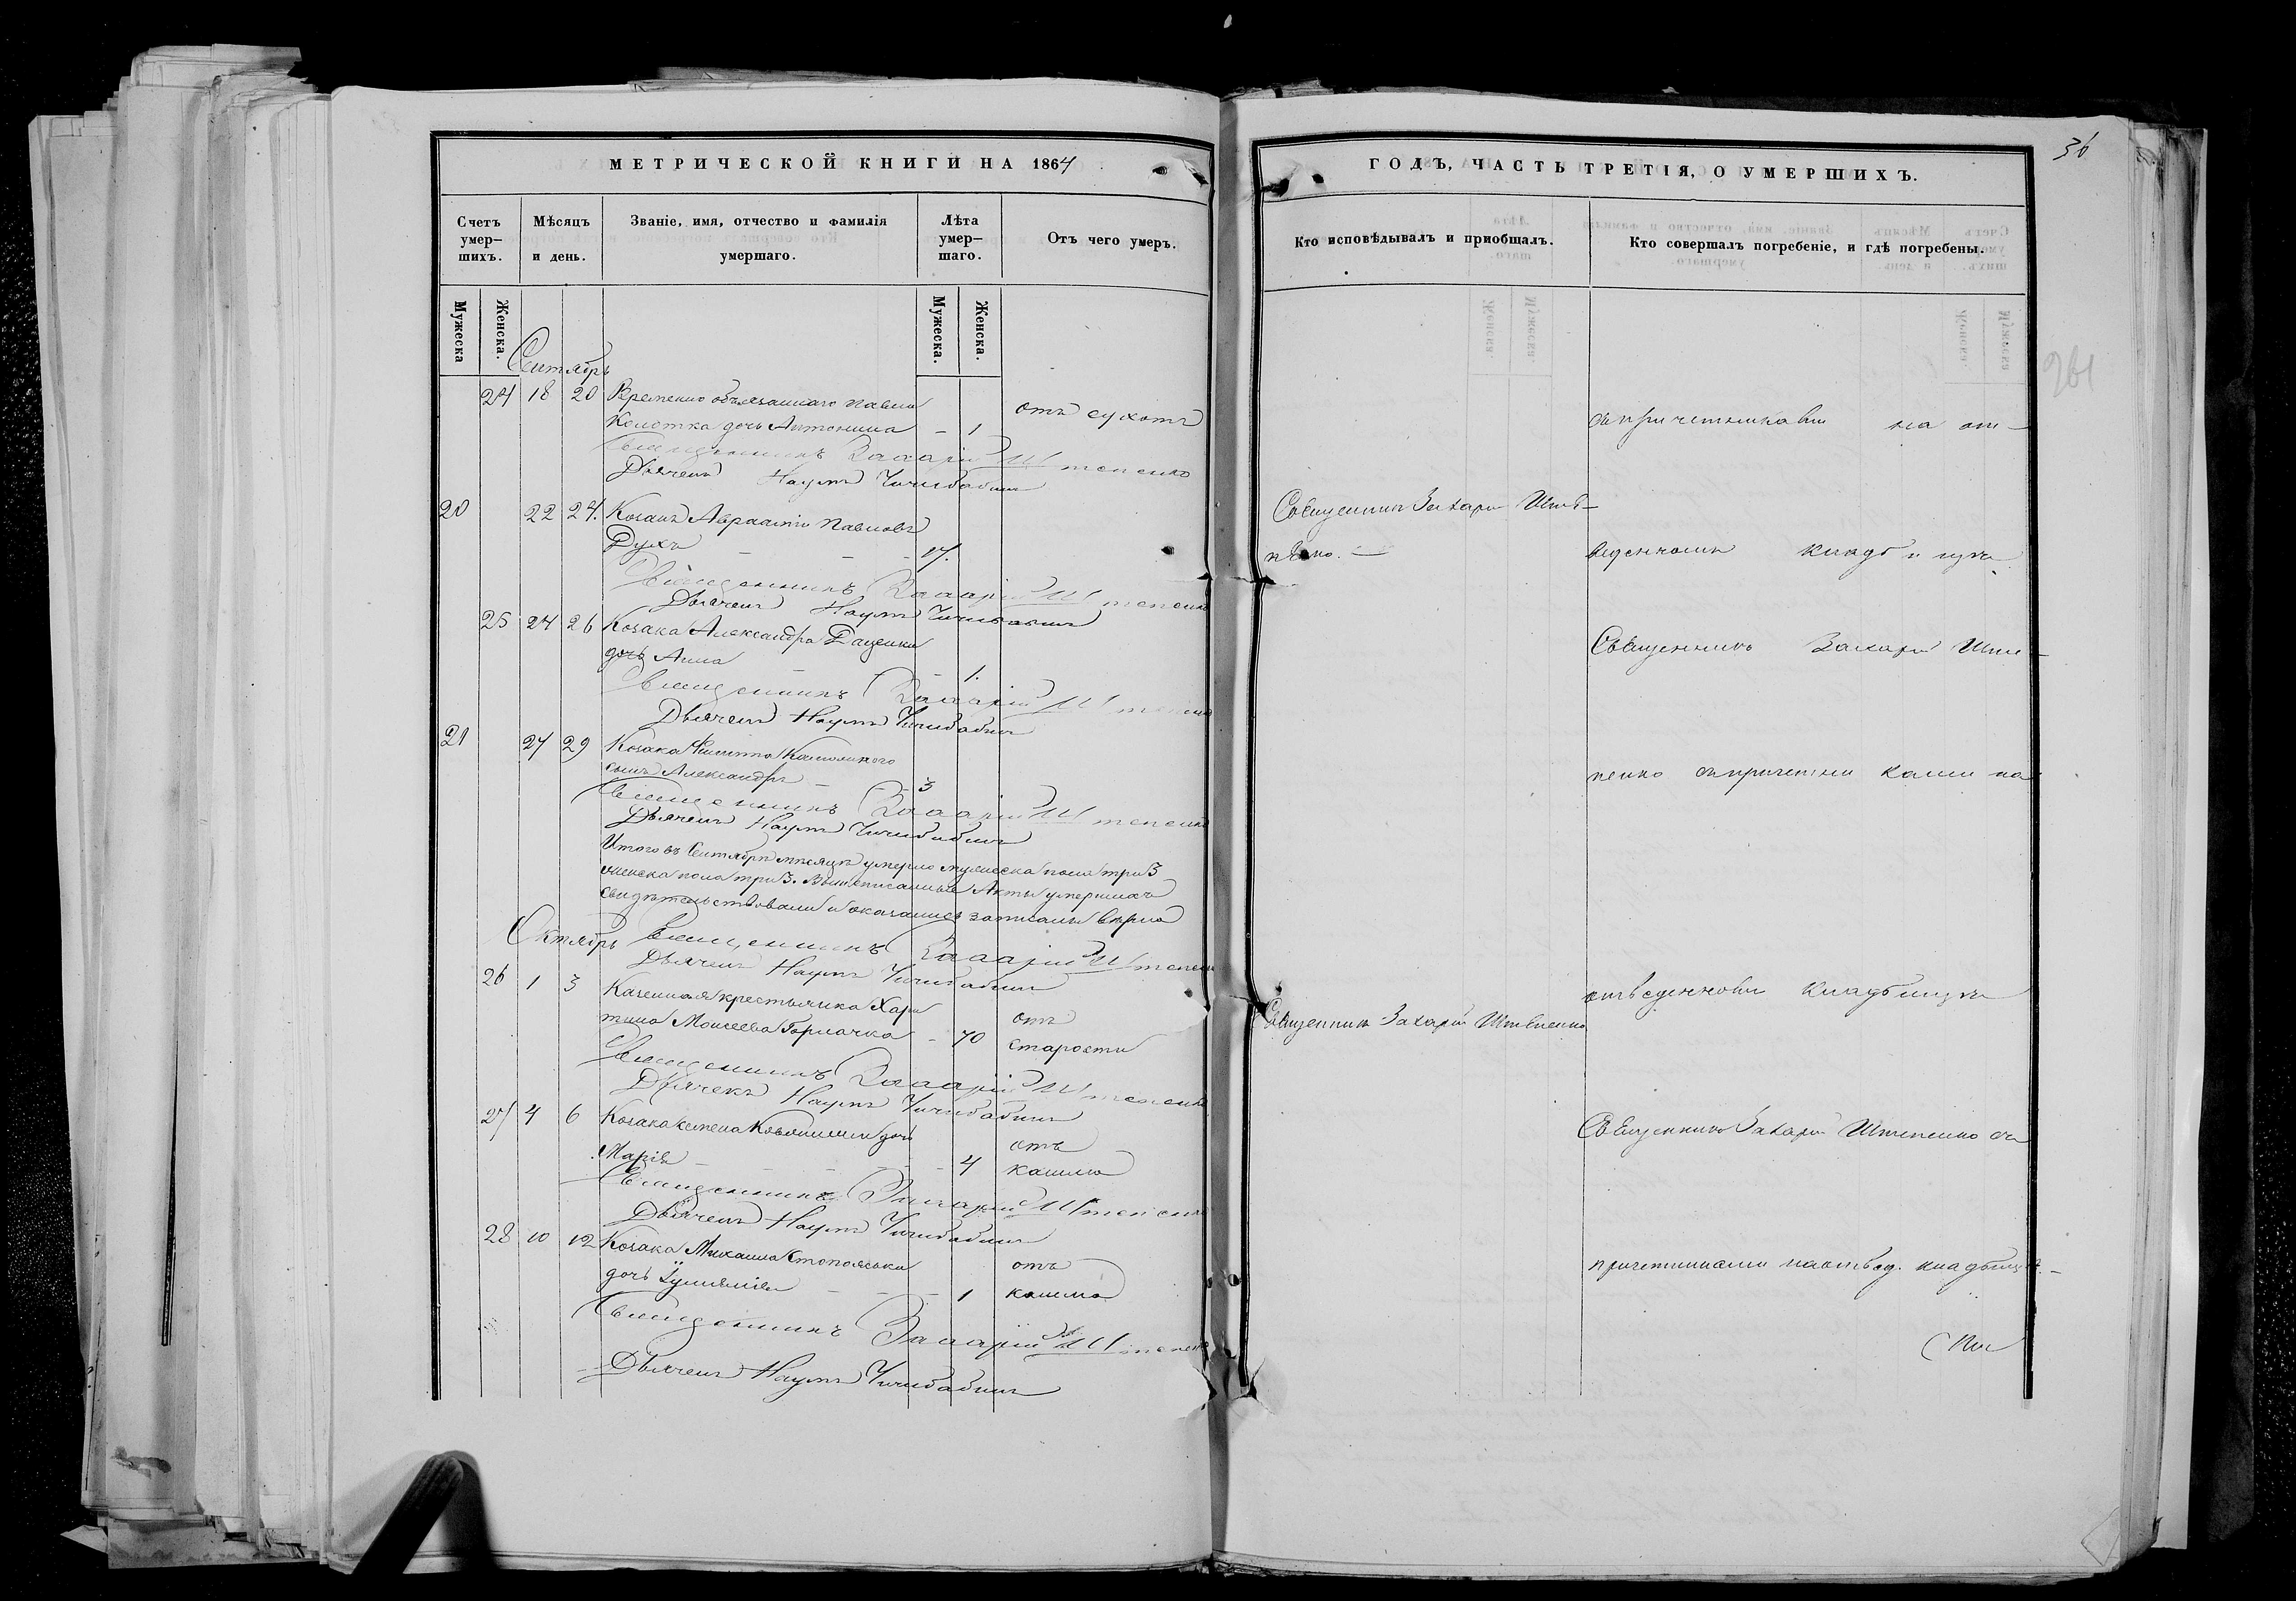 МЕТРИЧЕСКОЙ КНИГИ НА 1864
Счетъ умер-шихъ.
Мѣсяцъ и день.
Званіе, имя, отчество и фамилія умершаго.
Лѣта умер-шаго.
Отъ чего умеръ.
Мужеска
Женска.
Мужеска.
Женска.
Сентябрь
24 18 20 Временно обязаннаго Павла
Колотка дочь Антонина – 1 отъ сухотъ
Священникъ Захарій Штепенко
Дьячекъ Наумъ Чичибабинъ
20 22 24. Козакъ Аврамій Павловъ
Духъ – – – 17.
Священникъ Захарій Штепенко
Дьячекъ Наумъ Чичибабинъ
25 24 26 Козака Александра Даценки
дочь Анна – – – 1.
Священникъ Захарій Штепенко
Дьячекъ Наумъ Чичибабинъ
21 27 29 Козака
сынъ Александръ – – 3
Священникъ Захарій Штепенко
Дьячекъ Наумъ Чичибабинъ
Итого въ Сентябрѣ мѣсяцѣ умерло мужеска пола три 3
женска пола три 3. Вышеписанные Акты умершихъ
свидѣтельствовали и оказались записаны вѣрно
Октябрь
Священникъ Захарій Штепенко
Дьячекъ Наумъ Чичибабинъ
26 1 3 Казенная крестьянка Хари
тина Моисеева Горлачка – 70 отъ старости
Священникъ Захарій Штепенко
Дьячекъ Наумъ Чичибабинъ
27 4 6 Козака Семена дочь
Марія – – – 4 отъ кашлю
Священникъ Захарій Штепенко
Дьячекъ Наумъ Чичибабинъ
28 10 12 Козака Михаила
дочь Іуліанія – – – 1 отъ кашлю
Священникъ Захарій Штепенко
Дьячекъ Наумъ Чичибабинъ
36
ГОДЪ, ЧАСТЬ ТРЕТІЯ, О УМЕРШИХЪ.
Кто исповѣдывалъ и пріобщалъ.
Кто совершалъ погребеніе, и гдѣ погребены.
261
съ причетниками на отв-
Священникъ Захарій Штѣ-
пѣнко. —
веденномъ кладбищѣ
Священникъ Захарій Ште-
пенко съ причетниками на
отведенномъ кладбищѣ
Священникъ Захарій Штепенко
Священникъ Захарій Штепенко съ
причетниками на отвед. кладбищѣ. –